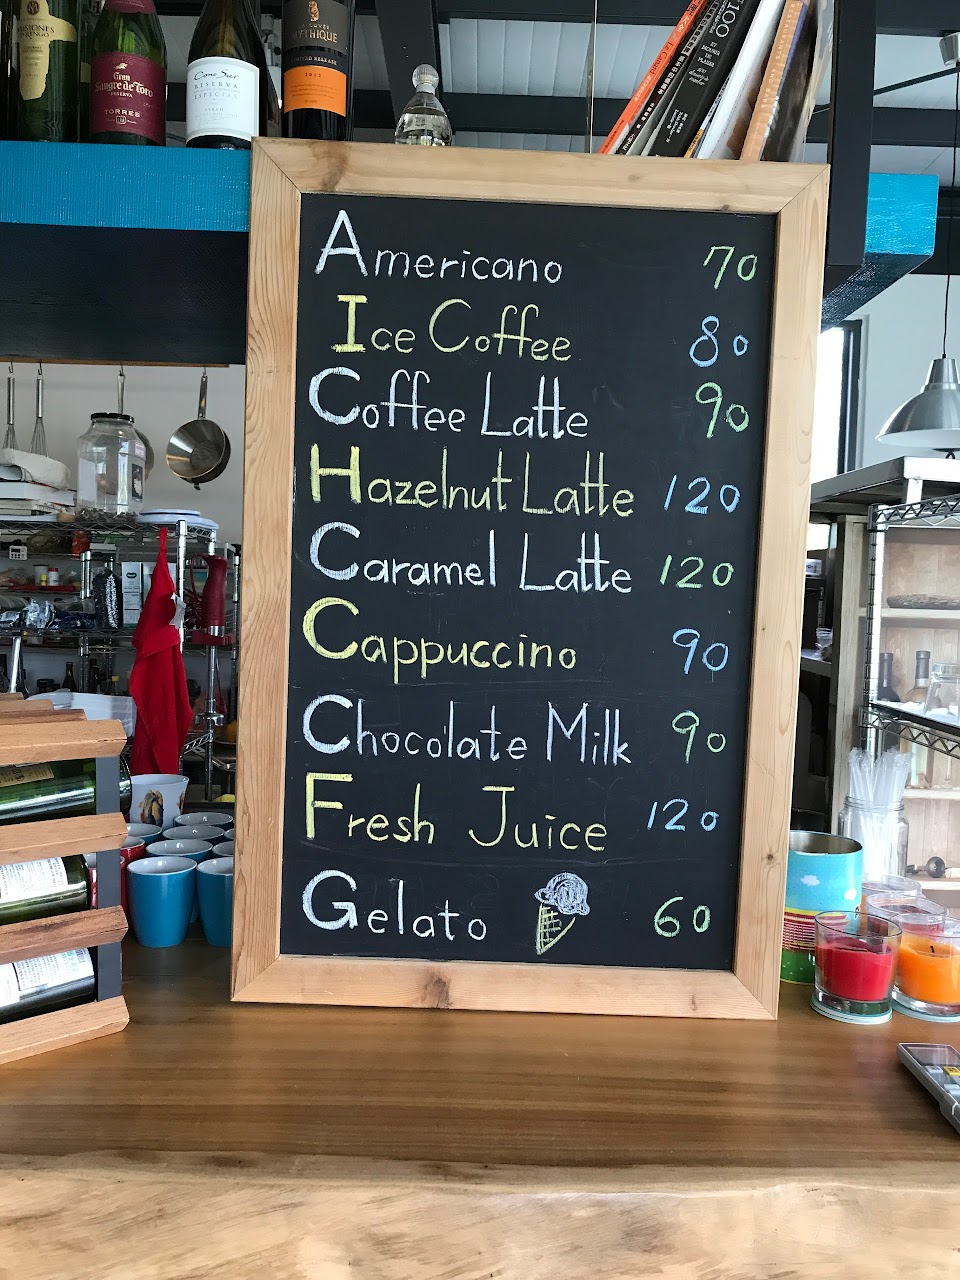 Gran
Sangre de Toro
RESERVA
TORRES
Cono Sur
RESERVA
ESPECIAL
SYRAH
MYTHIQUE
LIMITED RELEASE
2012
Americano 70
Ice Coffee 80
Coffee Latte 90
Hazelnut Latte 120
Caramel Latte 120
Cappuccino 90
Chocolate Milk 90
Fresh Juice 120
Gelato 60